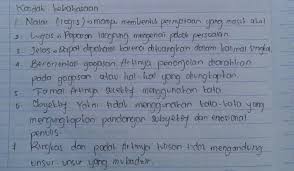 Kaidah kebahasaan
1. Nalar (logis) → mampu membentuk pernyataan yang masuk akal
2. Lugas → Paparan langsung mengenai pokok persoalan.
3. Jelas → dapat dipahami karena dituangkan dalam kalimat
4. Berorientasi gagasan Artinya penonjolan diarahkan
pada gagasan atau hal-hal yang diungkapkan
5. Formal Artinya menggunakan kata
6. Obyektif Yakni tidak menggunakan kata-kata yang
mengungkapkan pandangan subyektif dan emosional
penulis.
7. Ringkas dan padat Artinya tulisan tidak mengandung
unsur-unsur yang mubadzir.